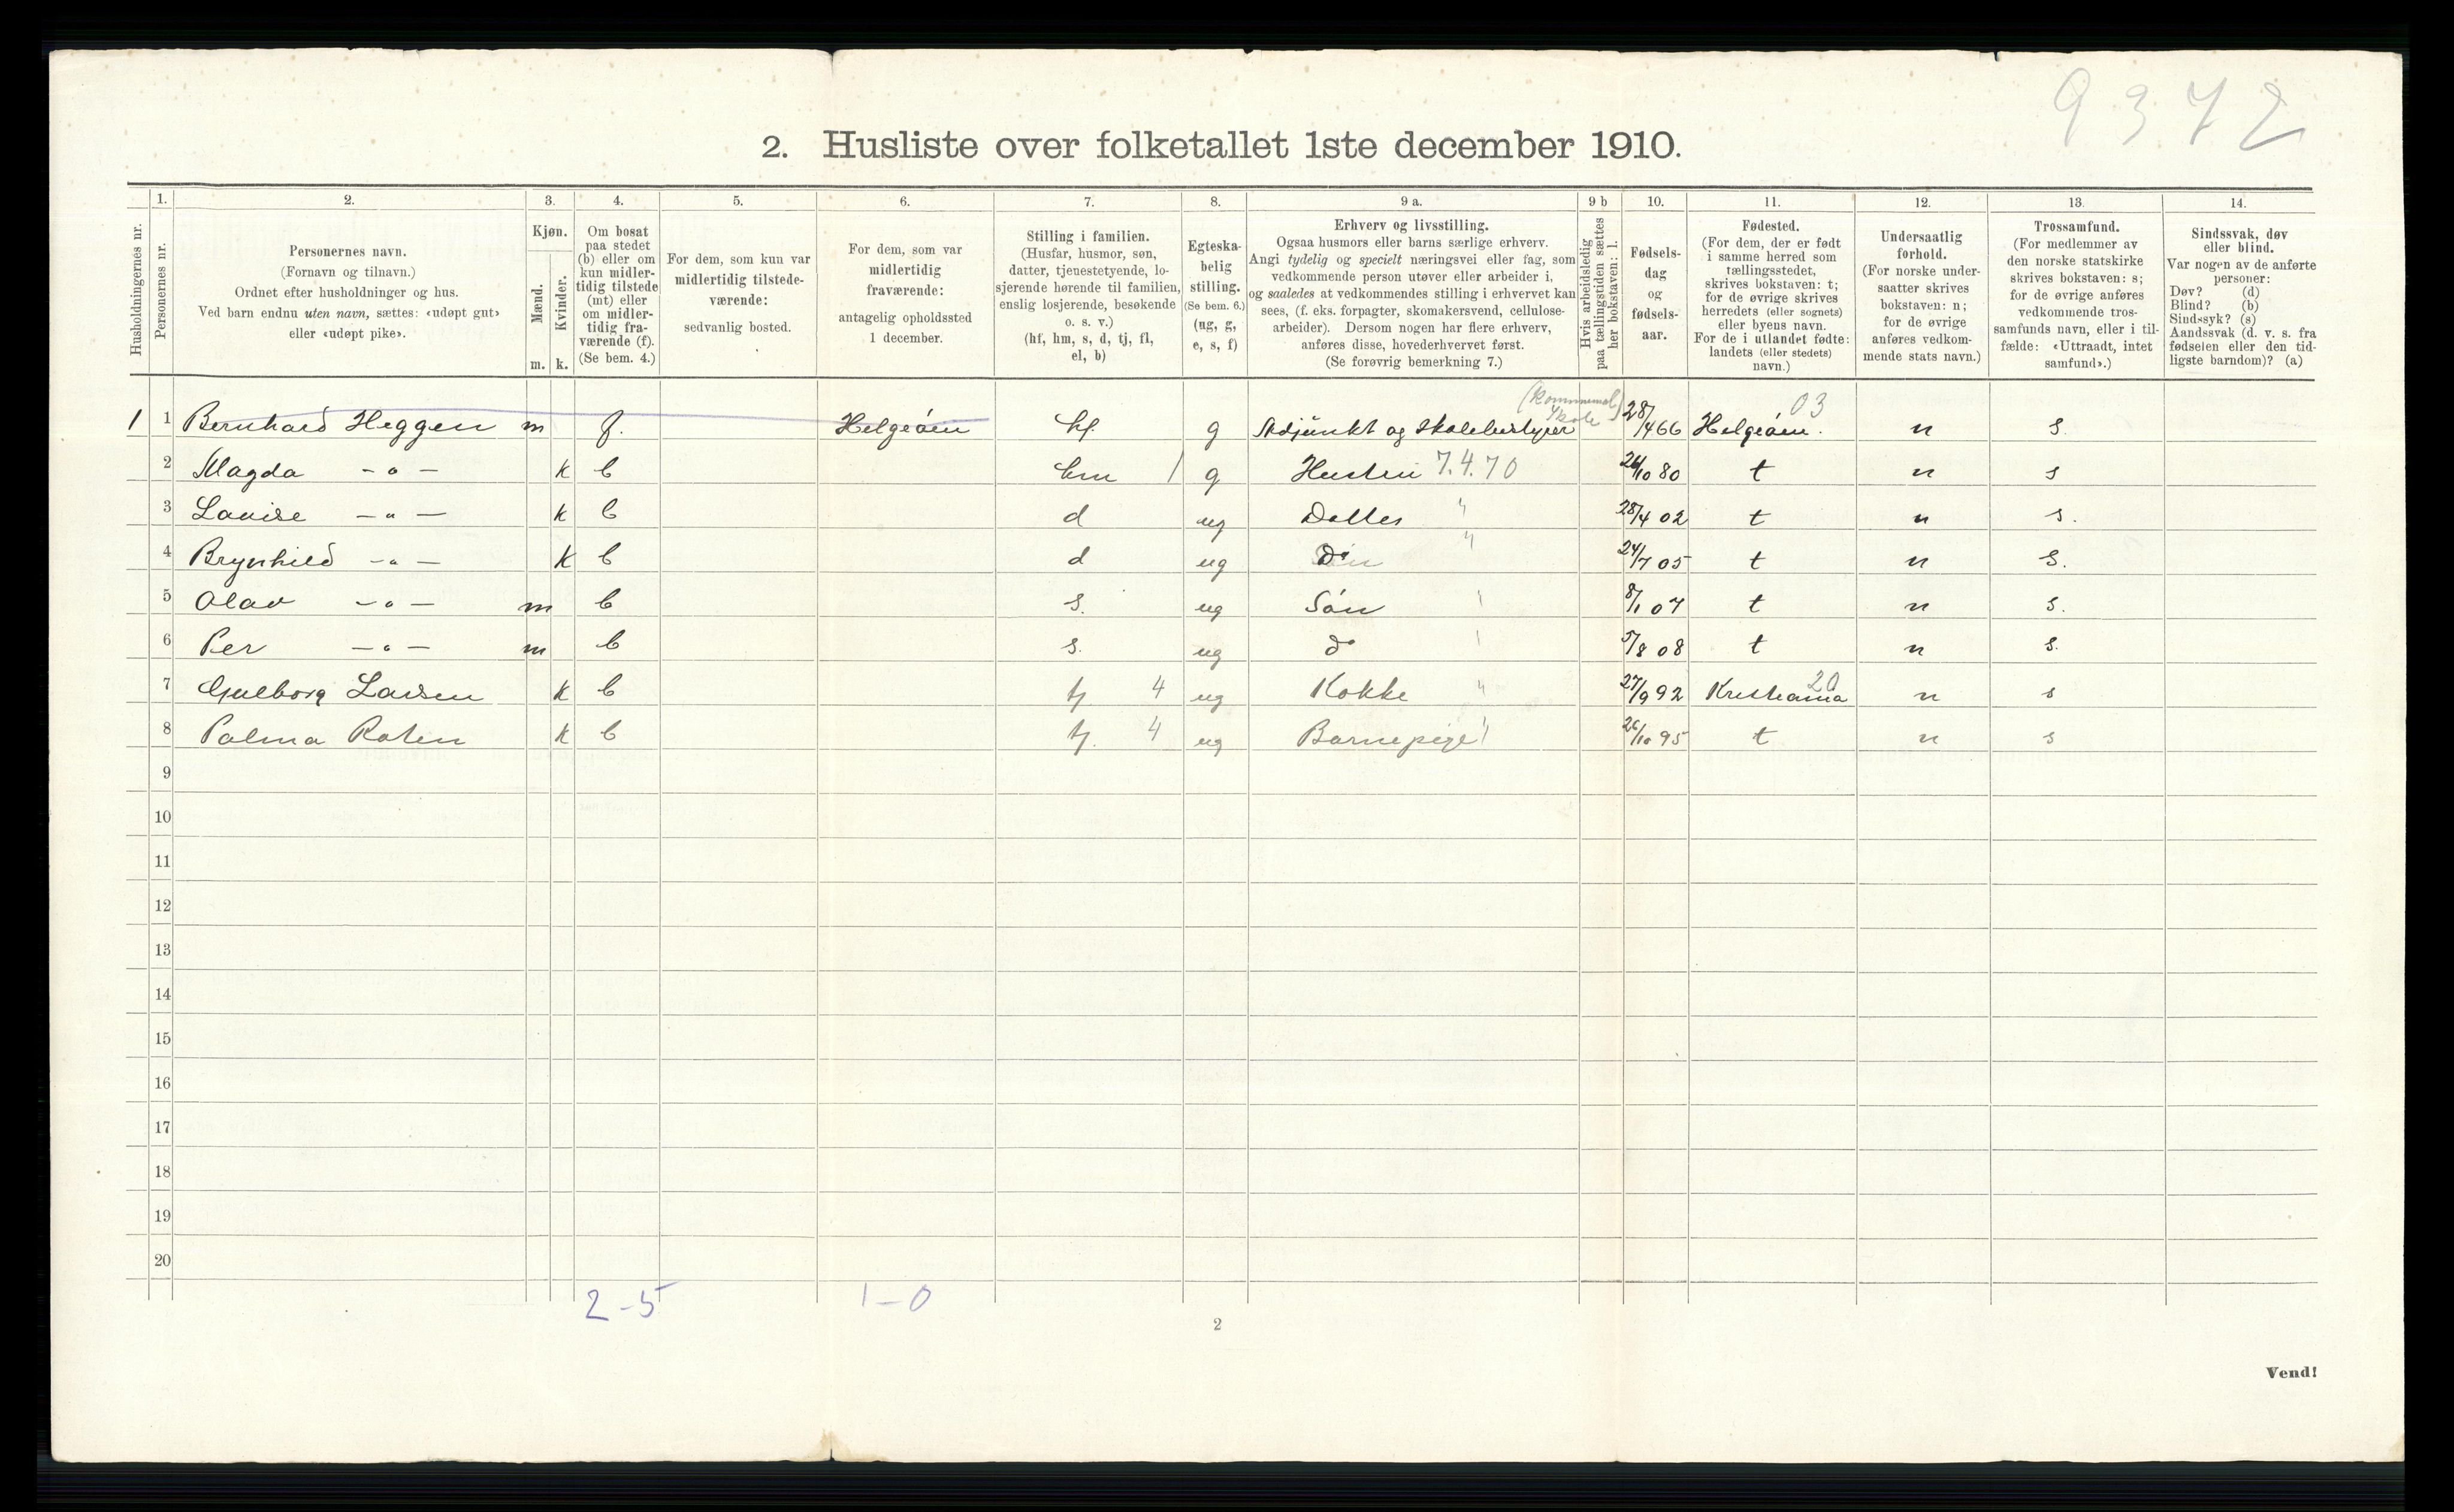 9372
2. Husliste over folketallet 1ste december 1910.
Husholdningernes nr.
1. Personernes nr.
2. Personernes navn. (Fornavn og tilnavn.) Ordnet efter husholdninger og hus. Ved barn endnu uten navn, sættes: «udøpt gut» eller «udøpt pike».
3. Kjøn. Mænd. m. Kvinder. k.
4. Om bosat paa stedet (b) eller om kun midlertidig tilstede (mt) eller om midlertidig fraværende (f). (Se bem. 4.)
5. For dem, som kun var midlertidig tilstedeværende: sedvanlig bosted.
6. For dem, som var midlertidig fraværende: antagelig opholdssted 1 december.
7. Stilling i familien. (Husfar, husmor, søn, datter, tjenestetyende, losjerende hørende til familien, enslig losjerende, besøkende o. s. v.) (hf, hm, s, d, tj, fl, el, b)
8. Egteskabelig stilling. (Se bem. 6.) (ug, g, e, s, f)
9 a. Erhverv og livsstilling. Ogsaa husmors eller barns særlige erhverv. Angi tydelig og specielt næringsvei eller fag, som vedkommende person utøver eller arbeider i, og saaledes at vedkommendes stilling i erhvervet kan sees, (f. eks. forpagter, skomakersvend, cellulosearbeider). Dersom nogen har flere erhverv, anføres disse, hovederhvervet først. (Se forøvrig bemerkning 7.)
9 b Hvis arbeidsledig paa tællingstiden sættes her bokstaven: l.
10. Fødselsdag og fødselsaar.
11. Fødested. (For dem, der er født i samme herred som tællingsstedet, skrives bokstaven: t; for de øvrige skrives herredets (eller sognets) eller byens navn. For de i utlandet fødte: landets (eller stedets) navn.)
12. Undersaatlig forhold. (For norske undersaatter skrives bokstaven: n; for de øvrige anføres vedkommende stats navn.)
13. Trossamfund. (For medlemmer av den norske statskirke skrives bokstaven: s; for de øvrige anføres vedkommende trossamfunds navn, eller i tilfælde: «Uttraadt, intet samfund».)
14. Sindssvak, døv eller blind. Var nogen av de anførte personer: Døv? (d) Blind? (b) Sindssyk? (s) Aandssvak (d. v. s. fra fødselen eller den tidligste barndom)? (a)
1 1 Bernhard Heggen m f. Helgeøen hf. g Adjunkt og Skolebestyrer (kommunal Skole) 28/4 66 Helgeøen. 03 n s.
2 Magda -"- k b hm 1 g Hustru 7.4.70 26/10 80 t n s
3 Lovise -"- k b d ug Datter " 28/4 02 t n s.
4 Brynhild -"- k b d ug do " 24/7 05 t n s.
5 Olav -"- m b s. ug Søn " 8/1 07 t n s.
6 Per -"- m b s. ug do " 5/8 08 t n s.
7 Gulborg Larsen k b tj 4 ug Kokke " 27/9 92 Kristiania 20 n s
8 Palma Roten k b tj. 4 ug Barnepige " 26/10 95 t n s
9
10
11
12
13
14
15
16
17
18
19
20
2-5 1-0
2
Vend!